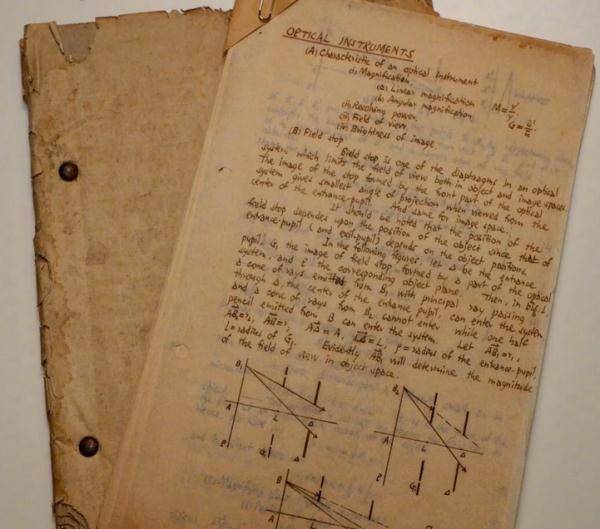 OPTICAL INSTRUMENTS
(A) Characteristic of an optical instrument
(i) Magnification
(a) Linear magnification M = Y'/Y
(b) Angular magnification G = u'/u
(ii) Resolving power
(iii) Field of view
(iv) Brightness of image
(B) Field stop
Field stop is one of the diaphragms in an optical
system which limits the field of view both in object and image spaces.
The image of the stop formed by the front part of the optical
system gives smallest angle of projection when viewed from the
center of the entrance-pupil. And same for image space.
It should be noted that the position of the
field stop depends upon the position of the object since that of
entrance-pupil (and exit-pupil) depends on the object position.
In the following figures, let Δ be the entrance
pupil, G₁ the image of field stop formed by a part of the optical
system, and P the corresponding object plane. Then, in Fig. 1,
a cone of rays emitted from B₁ with principal ray passing
through Δ, the center of the entrance pupil, can enter the system
and a cone of rays from B₂ cannot enter while one half
pencil emitted from B can enter the system. Let AB₁=r₁,
AB₂=r₂, AB=r, AΔ=A, LΔ=L, ρ=radius of the entrance-pupil,
l=radius of G₁. Evidently AB₁ will determine the magnitude
of the field of view in object space.
B₁
A
L
Δ
P
G₁
B₂
A
L
Δ
P
G₁
B
A